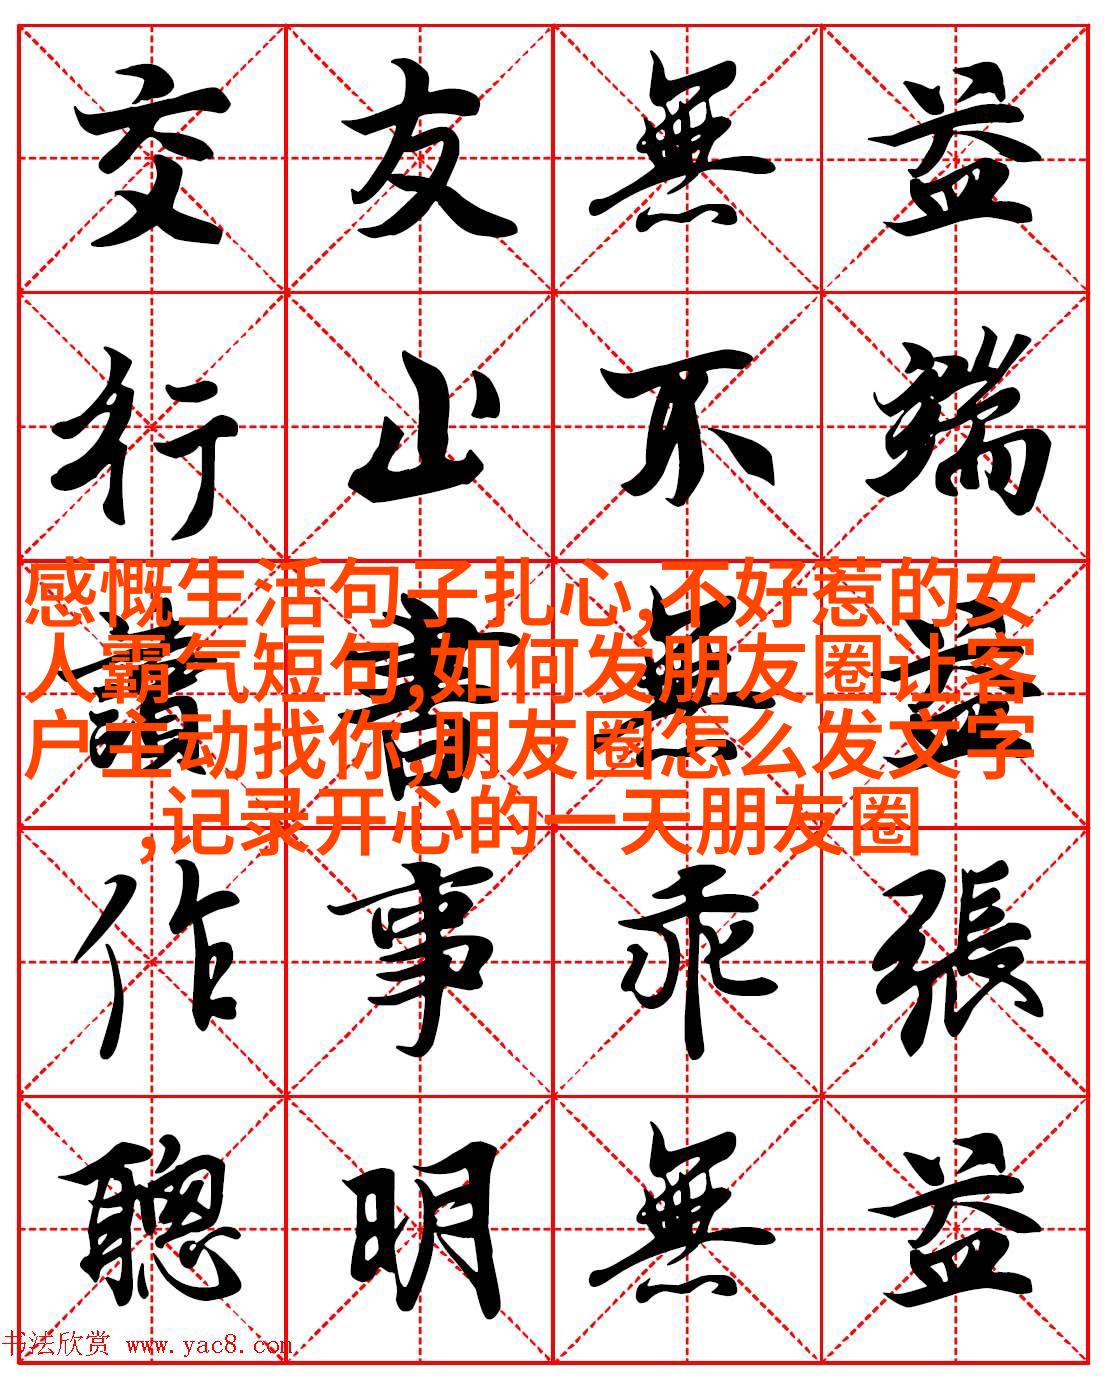 交友無益
行止不端
感慨生活句子扎心,不好惹的女
人霸气短句,如何发朋友圈让客
户主动找你,朋友圈怎么发文字
,记录开心的一天朋友圈
讀書無益
作事乖張
聰明無益
书法欣赏 www.yac8.com